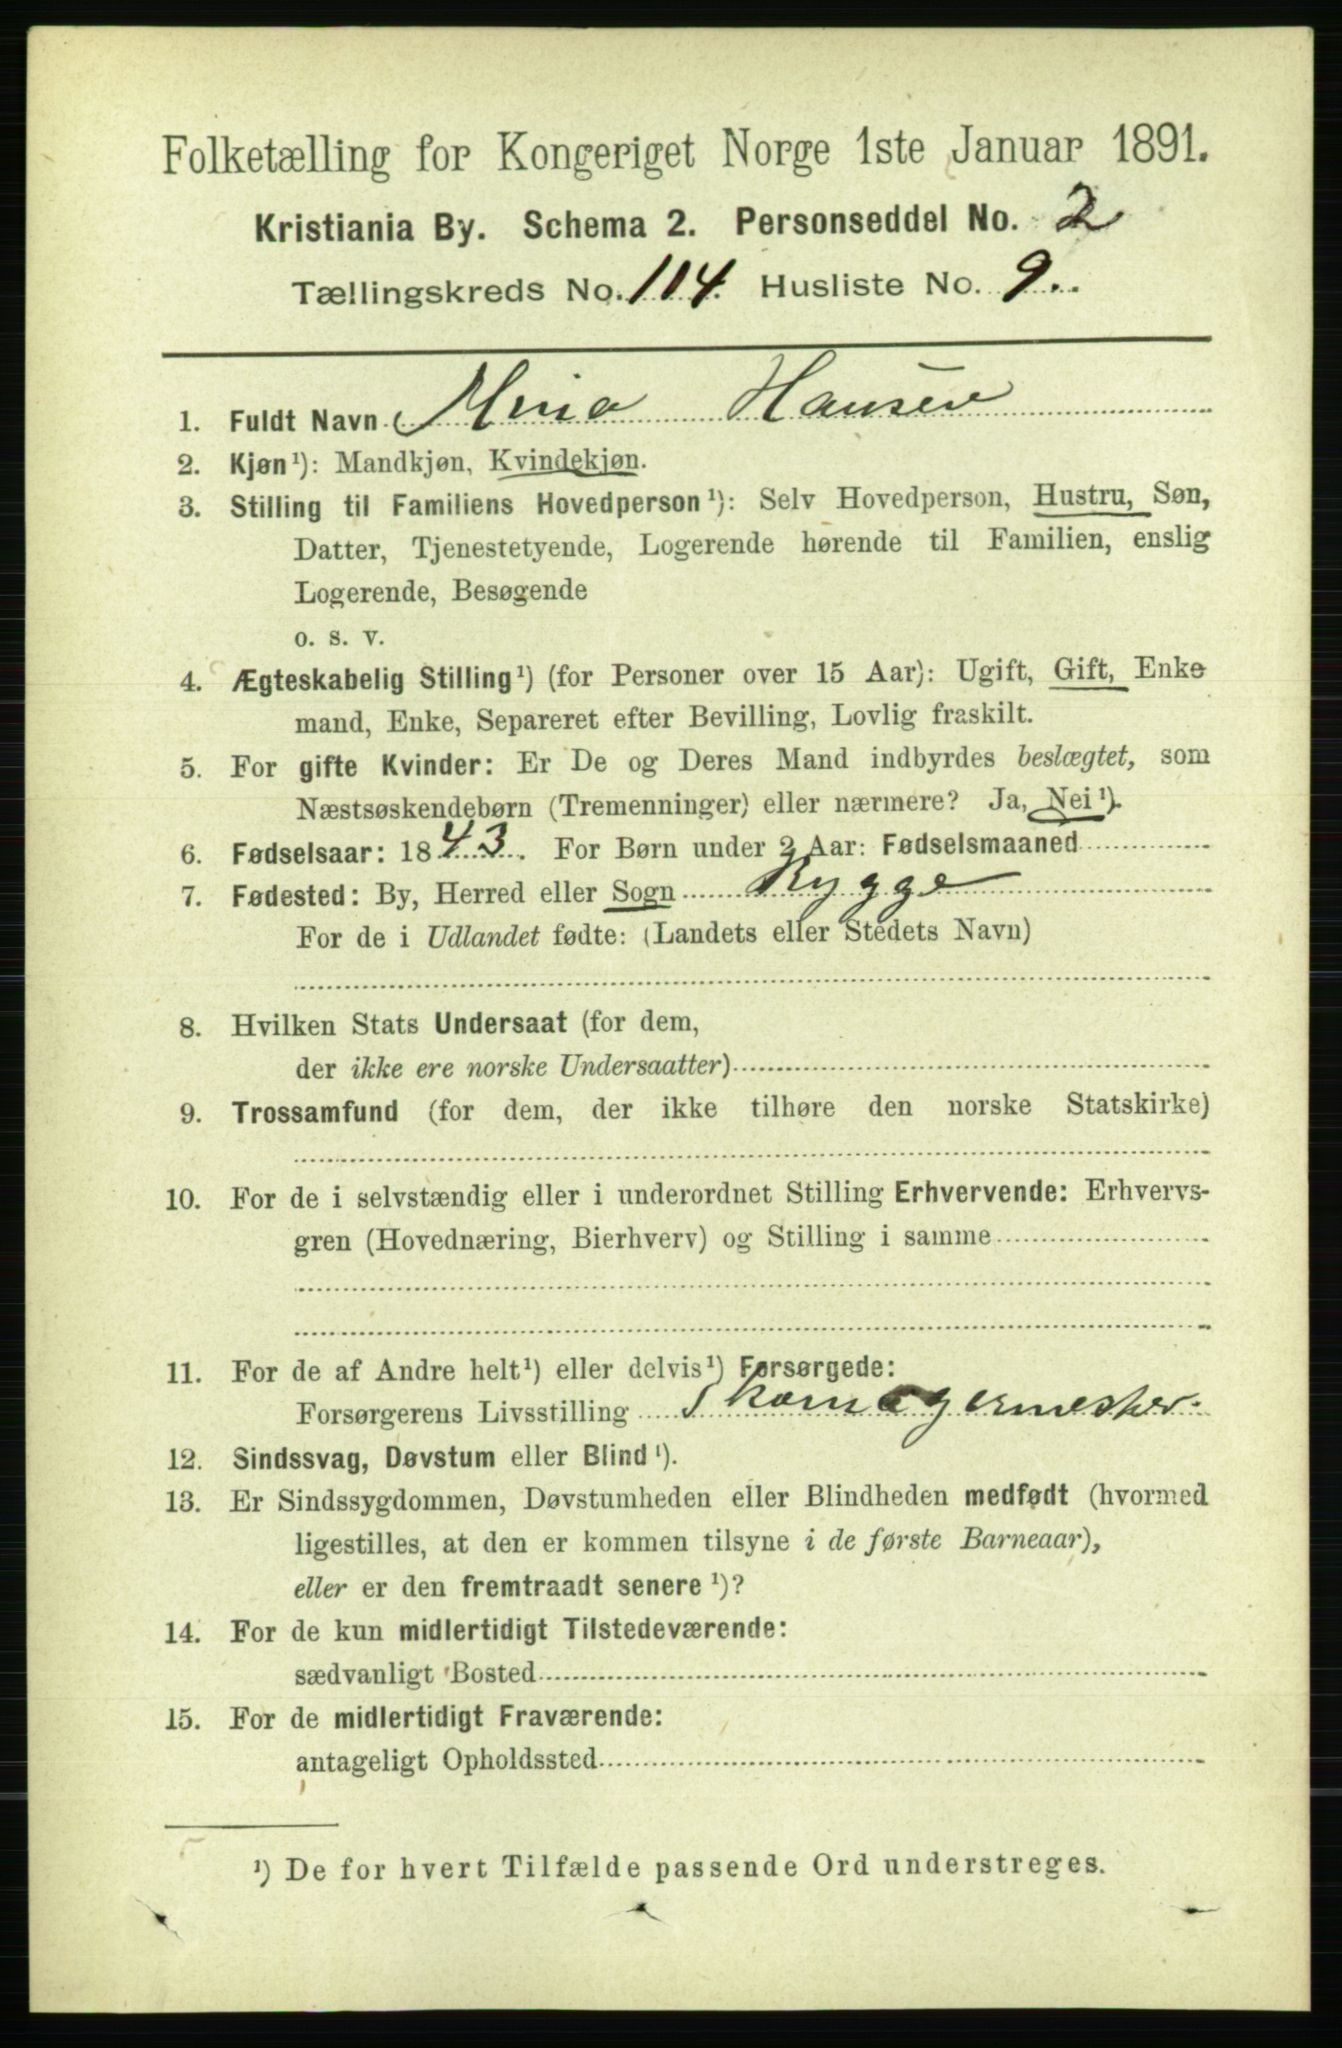 Folketælling for Kongeriget Norge 1ste Januar 1891.
Kristiania By. Schema 2. Personseddel No. 2
Tællingskreds No. 114. Husliste No. 9.
1. Fuldt Navn Mina Hansen
2. Kjøn¹): Mandkjøn, Kvindekjøn.
3. Stilling til Familiens Hovedperson¹): Selv Hovedperson, Hustru, Søn,
Datter, Tjenestetyende, Logerende hørende til Familien, enslig
Logerende, Besøgende
o. s. v.
4. Ægteskabelig Stilling¹) (for Personer over 15 Aar): Ugift, Gift, Enke
mand, Enke, Separeret efter Bevilling, Lovlig fraskilt.
5. For gifte Kvinder: Er De og Deres Mand indbyrdes beslægtet, som
Næstsøskendebørn (Tremenninger) eller nærmere? Ja, Nei¹).
6. Fødselsaar: 1843. For Børn under 2 Aar: Fødselsmaaned
7. Fødested: By, Herred eller Sogn Rygge
For de i Udlandet fødte: (Landets eller Stedets Navn)
8. Hvilken Stats Undersaat (for dem,
der ikke ere norske Undersaatter)
9. Trossamfund (for dem, der ikke tilhøre den norske Statskirke)
10. For de i selvstændig eller i underordnet Stilling Erhvervende: Erhvervs-
gren (Hovednæring, Bierhverv) og Stilling i samme
11. For de af Andre helt¹) eller delvis¹) Forsørgede:
Forsørgerens Livsstilling Skomagermester.
12. Sindssvag, Døvstum eller Blind¹).
13. Er Sindssygdommen, Døvstumheden eller Blindheden medfødt (hvormed
ligestilles, at den er kommen tilsyne i de første Barneaar),
eller er den fremtraadt senere¹)?
14. For de kun midlertidigt Tilstedeværende:
sædvanligt Bosted
15. For de midlertidigt Fraværende:
antageligt Opholdssted
¹) De for hvert Tilfælde passende Ord understreges.